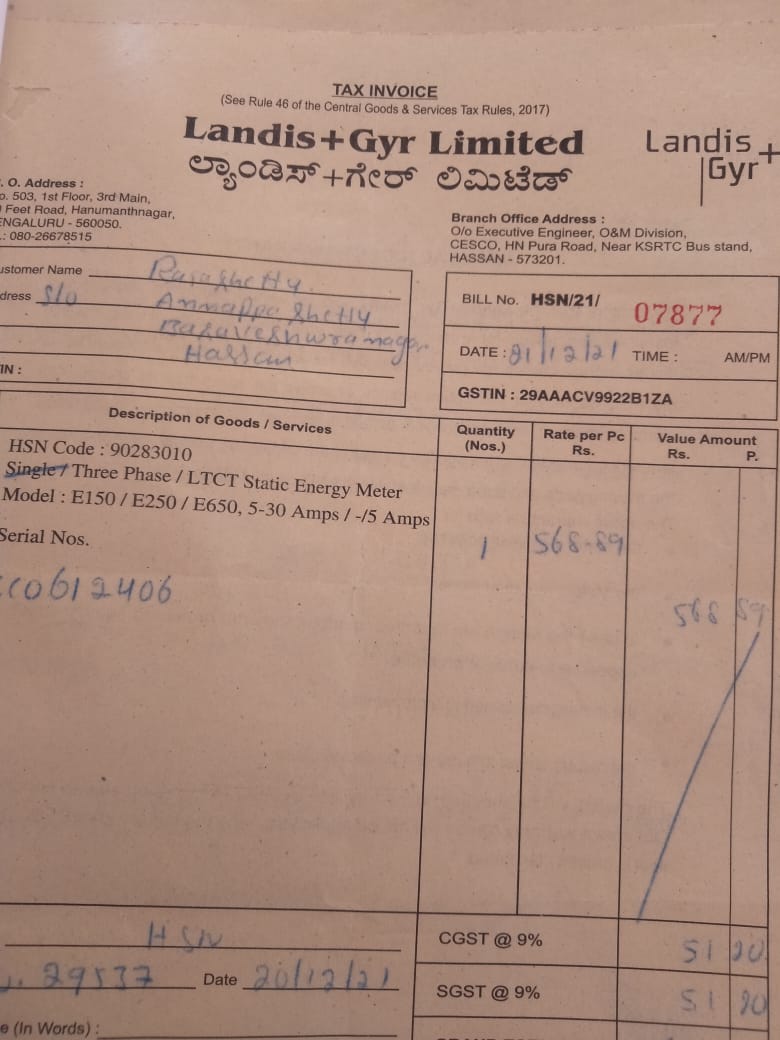 TAX INVOICE
(See Rule 46 of the Central Goods & Services Tax Rules, 2017)
Landis+Gyr Limited
ಲ್ಯಾಂಡಿಸ್+ಗೇರ್ ಲಿಮಿಟೆಡ್
Landis
Gyr+
. O. Address :
o. 503, 1st Floor, 3rd Main,
Feet Road, Hanumanthnagar,
ENGALURU - 560050.
.: 080-26678515
Branch Office Address :
O/o Executive Engineer, O&M Division,
CESCO, HN Pura Road, Near KSRTC Bus stand,
HASSAN - 573201.
ustomer Name
dress S/o
Annappa Shetty
Basaveshwranagar
Hassan
IN :
BILL No. HSN/21/ 07877
DATE : 21/12/21 TIME : AM/PM
GSTIN : 29AAACV9922B1ZA
Description of Goods / Services
Quantity (Nos.)
Rate per Pc Rs.
Value Amount Rs. P.
HSN Code : 90283010
Single / Three Phase / LTCT Static Energy Meter
Model : E150 / E250 / E650, 5-30 Amps / -/5 Amps
Serial Nos.
1 568-89
0612406
568 89
HSN
CGST @ 9% 51 20
29537 Date 20/12/21
SGST @ 9% 51 20
e (In Words) :